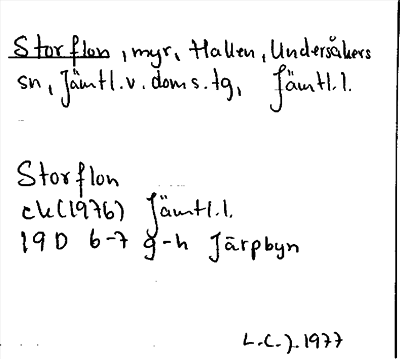 Storflon, myr, Hallen, Undersåkers
sn, Jämtl.v.doms.tg, Jämtl.l.
Storflon
ek(1976) Jämtl.l.
19D 6-7 g-h Järpbyn
L.C.J.1977